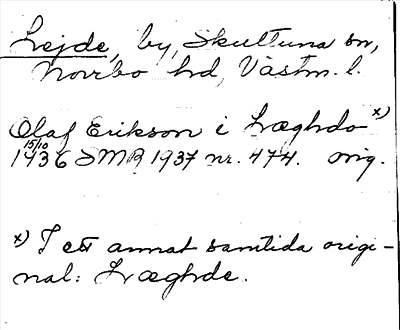 Lejde, by, Skultuna sn,
Norrbo hd, Västm. l.
Olaf Erikson i Læghdo x)
15/10
1436 SMR 1937 nr. 474. orig.
x) I ett annat samtida origi-
nal: Læghde.